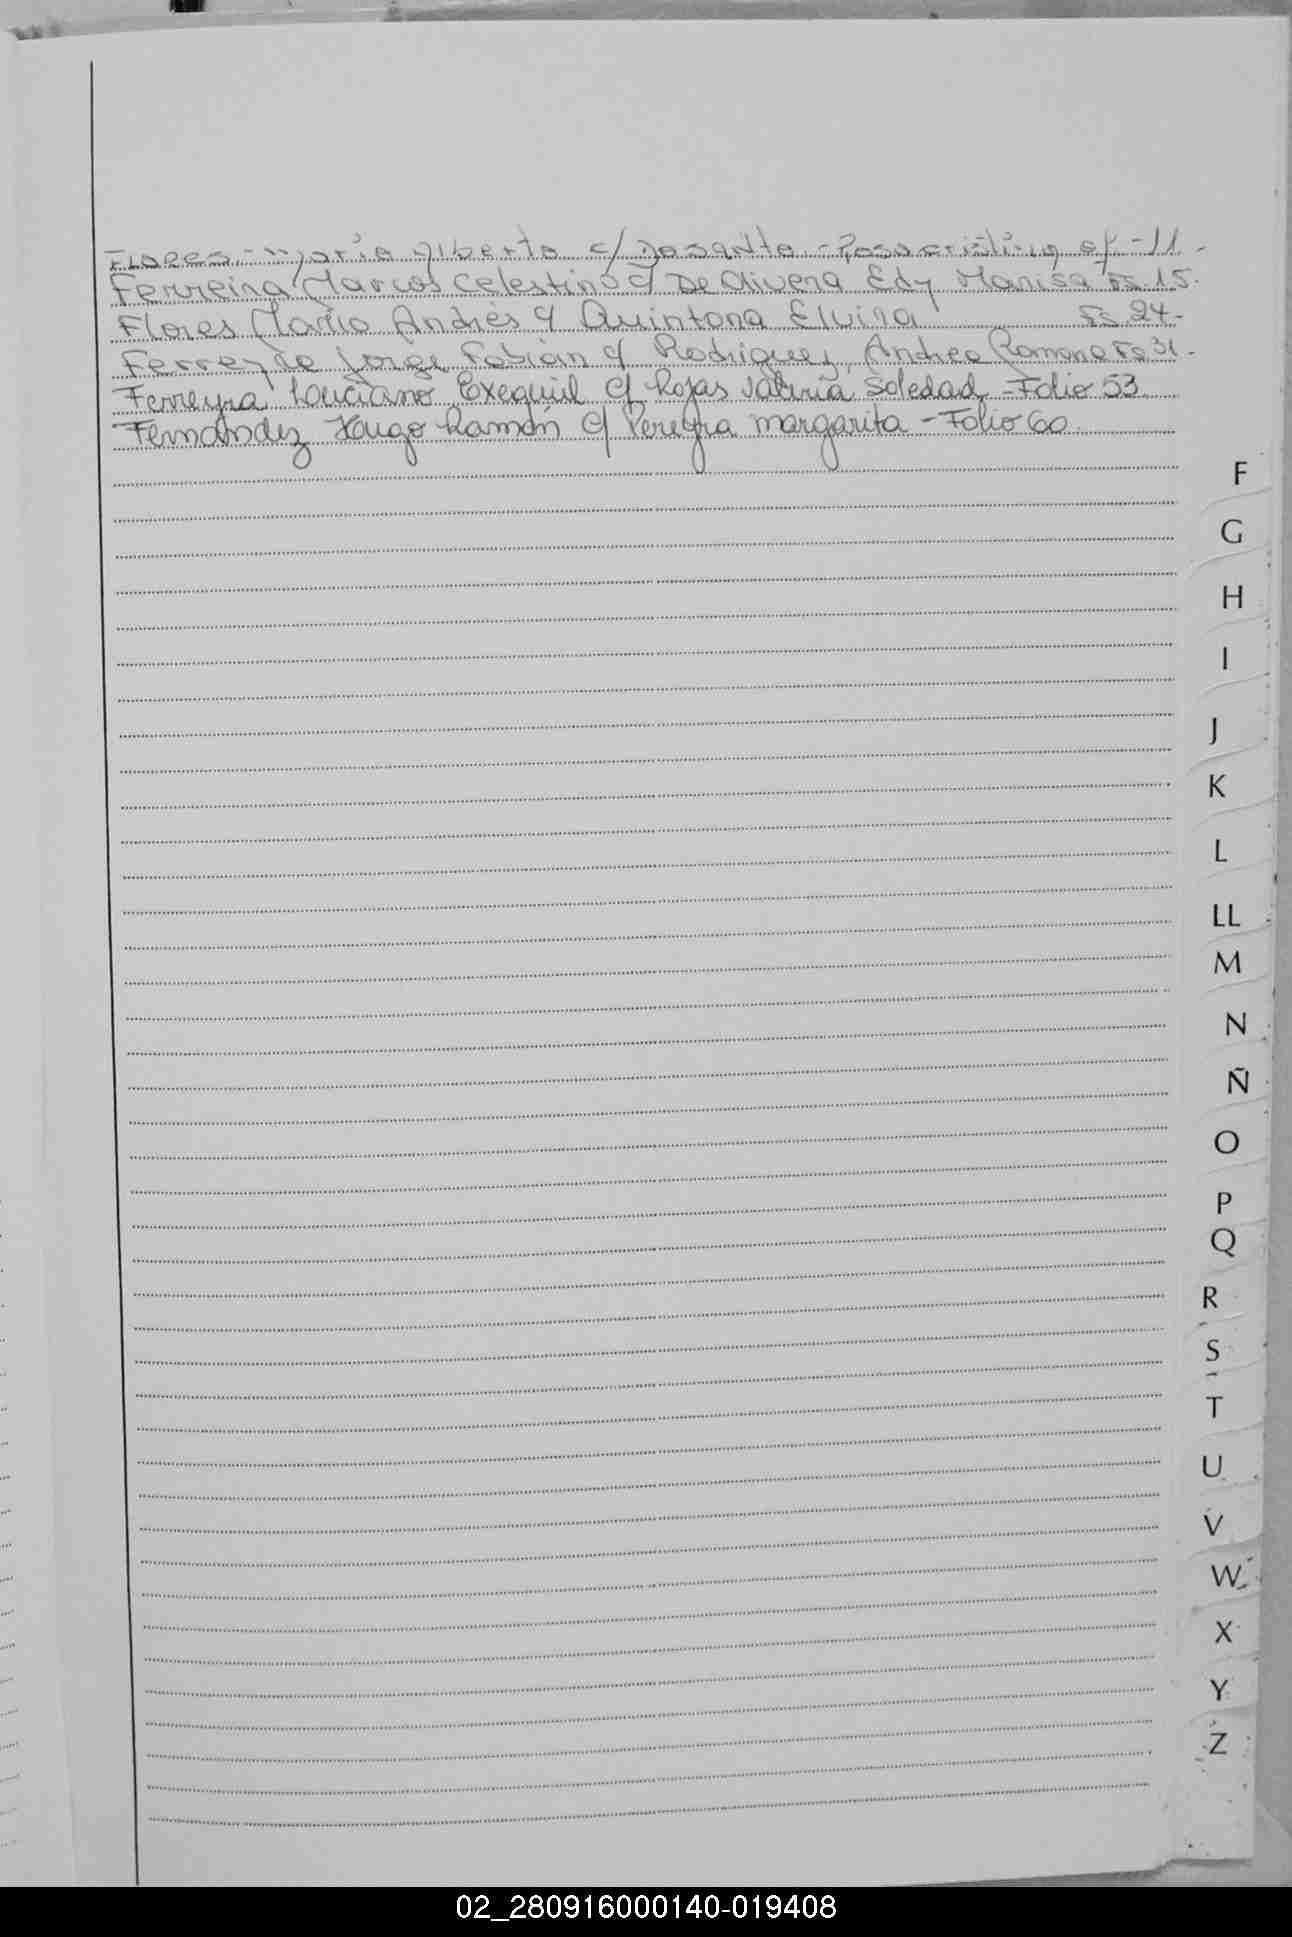 Flores - Mario Alberto c/ Dosanto - Rosa Cristina of - 11 -
Ferreira Marcos Celestino c/ De Olivera Edy Marisa Fo 15.
Flores Mario Andrés c/ Quintana Elvira Fo 24.-
Ferreyra Jorge Fabian c/ Rodriguez, Andrea Ramona Fo 31 -
Ferreyra Luciano Exequiel c/ Rojas Valeria Soledad - Folio 53.
Fernández Hugo Ramón c/ Pereyra margarita - Folio 60.
F
G
H
I
J
K
L
LL
M
N
Ñ
O
P
Q
R
S
T
U
V
W
X
Y
Z
02_280916000140-019408